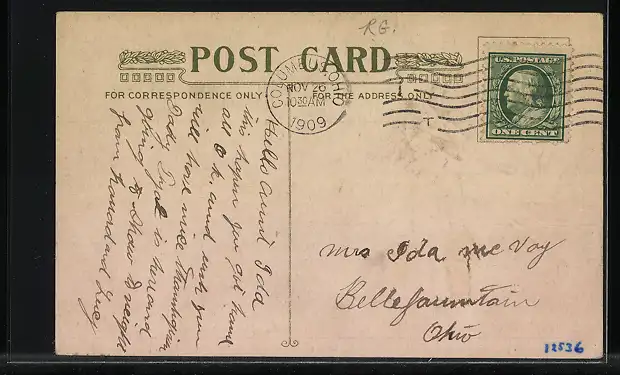 RG.
POST CARD
FOR CORRESPONDENCE ONLY
FOR THE ADDRESS ONLY
COLUMBUS, OHIO
NOV 26
1030AM
1909
T
U.S. POSTAGE
ONE CENT
Hello Aunt Ida
this hopes you got home
all O k. and
will have nice Thanksgiving
Dady is here and
going to Show to night
from Howard and Lucy
Mrs Ida Mc Voy
Bellefaunntain
Ohio
12536